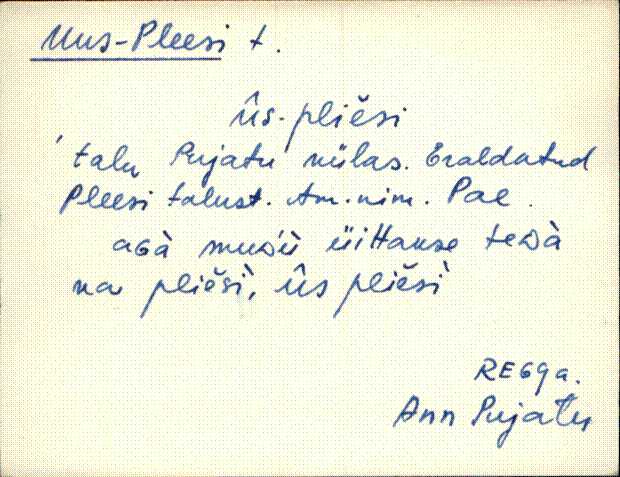 Uus-Pleesi t.
Ûs-pliĕsi
talu Pujatu külas. Eraldatud
Pleesi talust. Am. nim. Pae.
aGà muᴅ'ù üiттaнse teᴅà
na pliĕsì, Ûs pliĕsì
RE69a.
Ann Pujatu